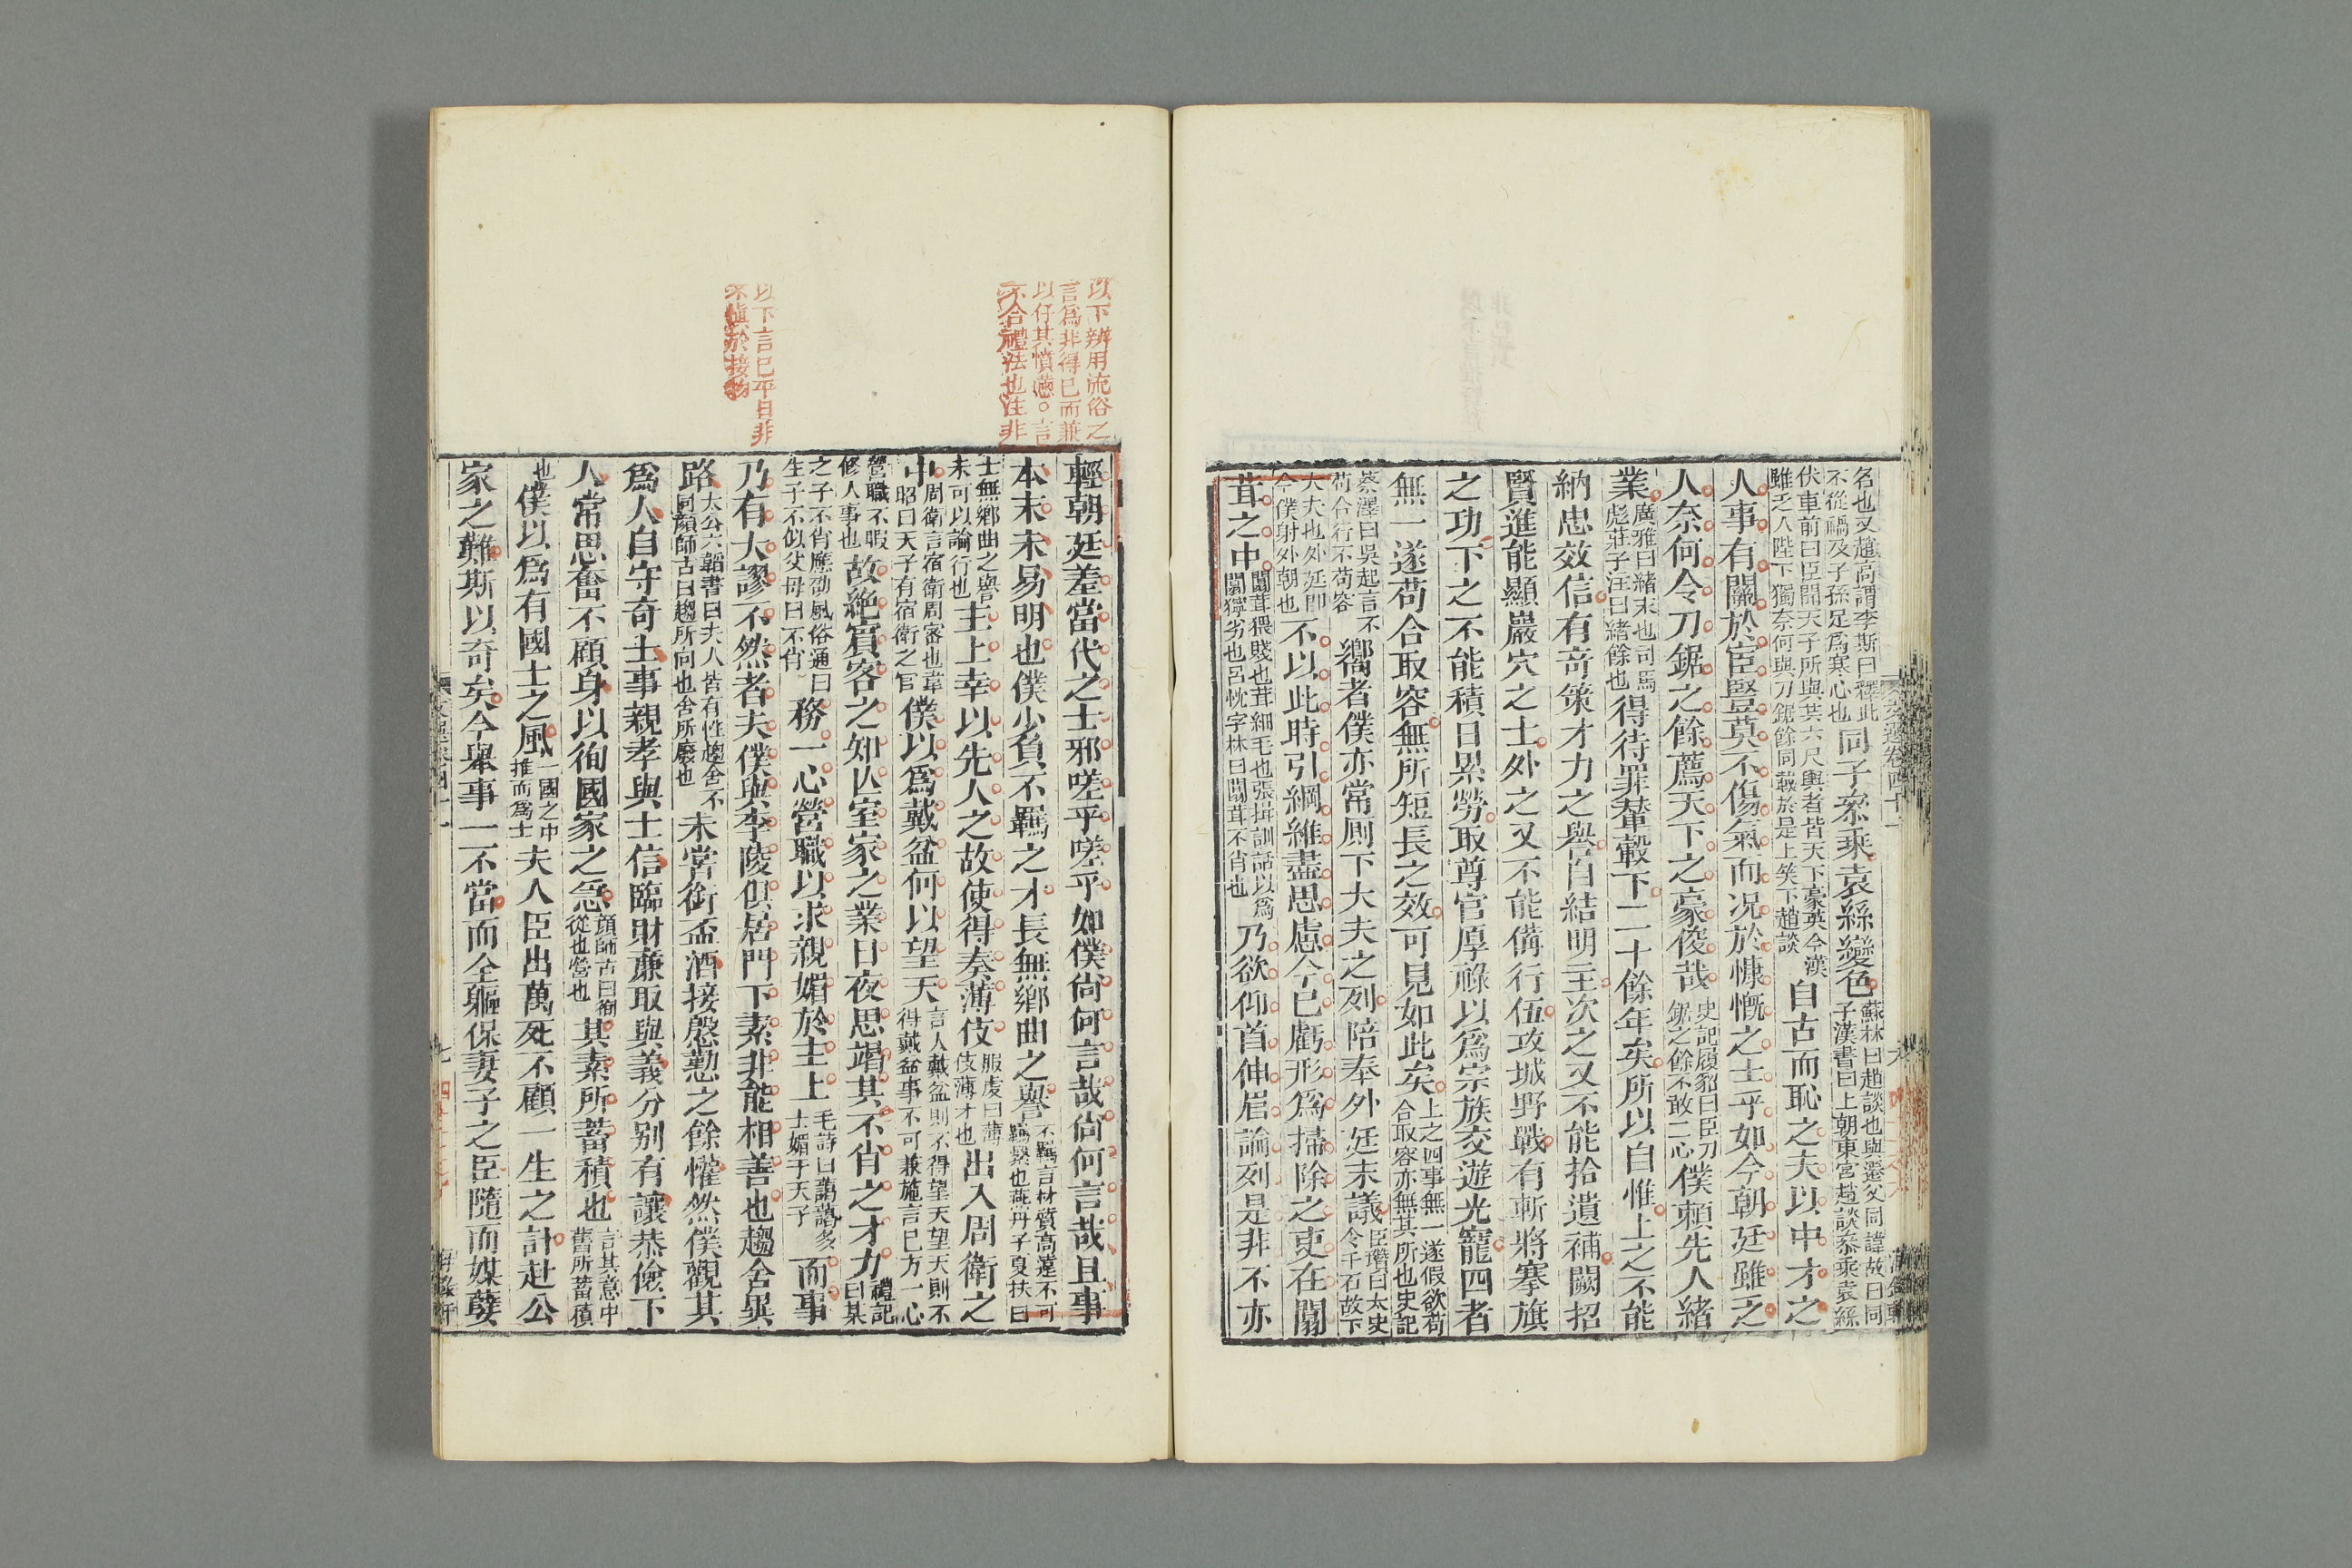 名也又趙高謂李斯曰釋此
不從禍及子孫足爲寒心也
同子參乘袁絲變色
蘇林曰趙談也與遷父同諱故曰同
子漢書曰上朝東宮趙談參乘袁絲
伏車前曰臣聞天子所與共六尺輿者皆天下豪英今漢
雖乏人陛下獨奈何與刀鋸餘同載於是上笑下趙談
自古而恥之夫以中才之
人事有關於宦豎莫不傷氣而况於慷慨之士乎如今朝廷雖乏
人奈何令刀鋸之餘薦天下之豪俊哉
史記履貂曰臣刀
鋸之餘不敢二心
僕賴先人緒
業
廣雅曰緒末也司馬
彪莊子注曰緒餘也
得待罪輦轂下二十餘年矣所以自惟上之不能
納忠效信有奇策才力之譽自結明主次之又不能拾遺補闕招
賢進能顯巖穴之士外之又不能備行伍攻城野戰有斬將搴旗
之功下之不能積日累勞取尊官厚祿以爲宗族交遊光寵四者
無一遂苟合取容無所短長之效可見如此矣
上之四事無一遂假欲苟
合取容亦無其所也史記
蔡澤曰吳起言不
苟合行不苟容
嚮者僕亦常厠下大夫之列陪奉外廷末議
臣瓚曰太史
令千石故下
大夫也外廷即
今僕射外朝也
不以此時引綱維盡思慮今已虧形爲掃除之吏在闒
茸之中
闒茸猥賤也茸細毛也張揖訓詁以爲
闒獰劣也呂忱字林曰闒茸不肖也
乃欲仰首伸眉論列是非不亦
文選卷四十一
以下辨用流俗之
言爲非得已而兼
以仔其憤懣。言
不合禮法也注非
輕朝廷羞當代之士邪嗟乎嗟乎如僕尙何言哉尙何言哉且事
本末未易明也僕少負不羈之才長無鄉曲之譽
不羈言材質高遠不可
羈繫也燕丹子夏扶曰
士無鄉曲之譽
未可以論行也
主上幸以先人之故使得奏薄伎
服虔曰薄
伎薄才也
出入周衛之
中
周衛言宿衛周密也韋
昭曰天子有宿衛之官
僕以爲戴盆何以望天
言人戴盆則不得望天望天則不
得戴盆事不可兼施言己方一心
營職不暇
修人事也
故絕賓客之知亡室家之業日夜思竭其不肖之才力
禮記
曰某
之子不肖應劭風俗通曰
生子不似父母曰不肖
務一心營職以求親媚於主上
毛詩曰藹藹多
士媚于天子
而事
以下言已平日非
不慎於接物
乃有大謬不然者夫僕與李陵俱居門下素非能相善也趨舍異
路
太公六韜書曰夫人皆有性趨舍不
同顔師古曰趨所向也舍所廢也
未嘗銜盃酒接慇懃之餘懽然僕觀其
爲人自守奇士事親孝與士信臨財廉取與義分别有讓恭儉下
人常思奮不顧身以徇國家之急
顔師古曰徇
從也營也
其素所蓄積也
言其意中
舊所蓄積
也
僕以爲有國士之風
一國之中
推而爲士
夫人臣出萬死不顧一生之計赴公
家之難斯以奇矣今舉事一不當而全軀保妻子之臣隨而媒孽
七